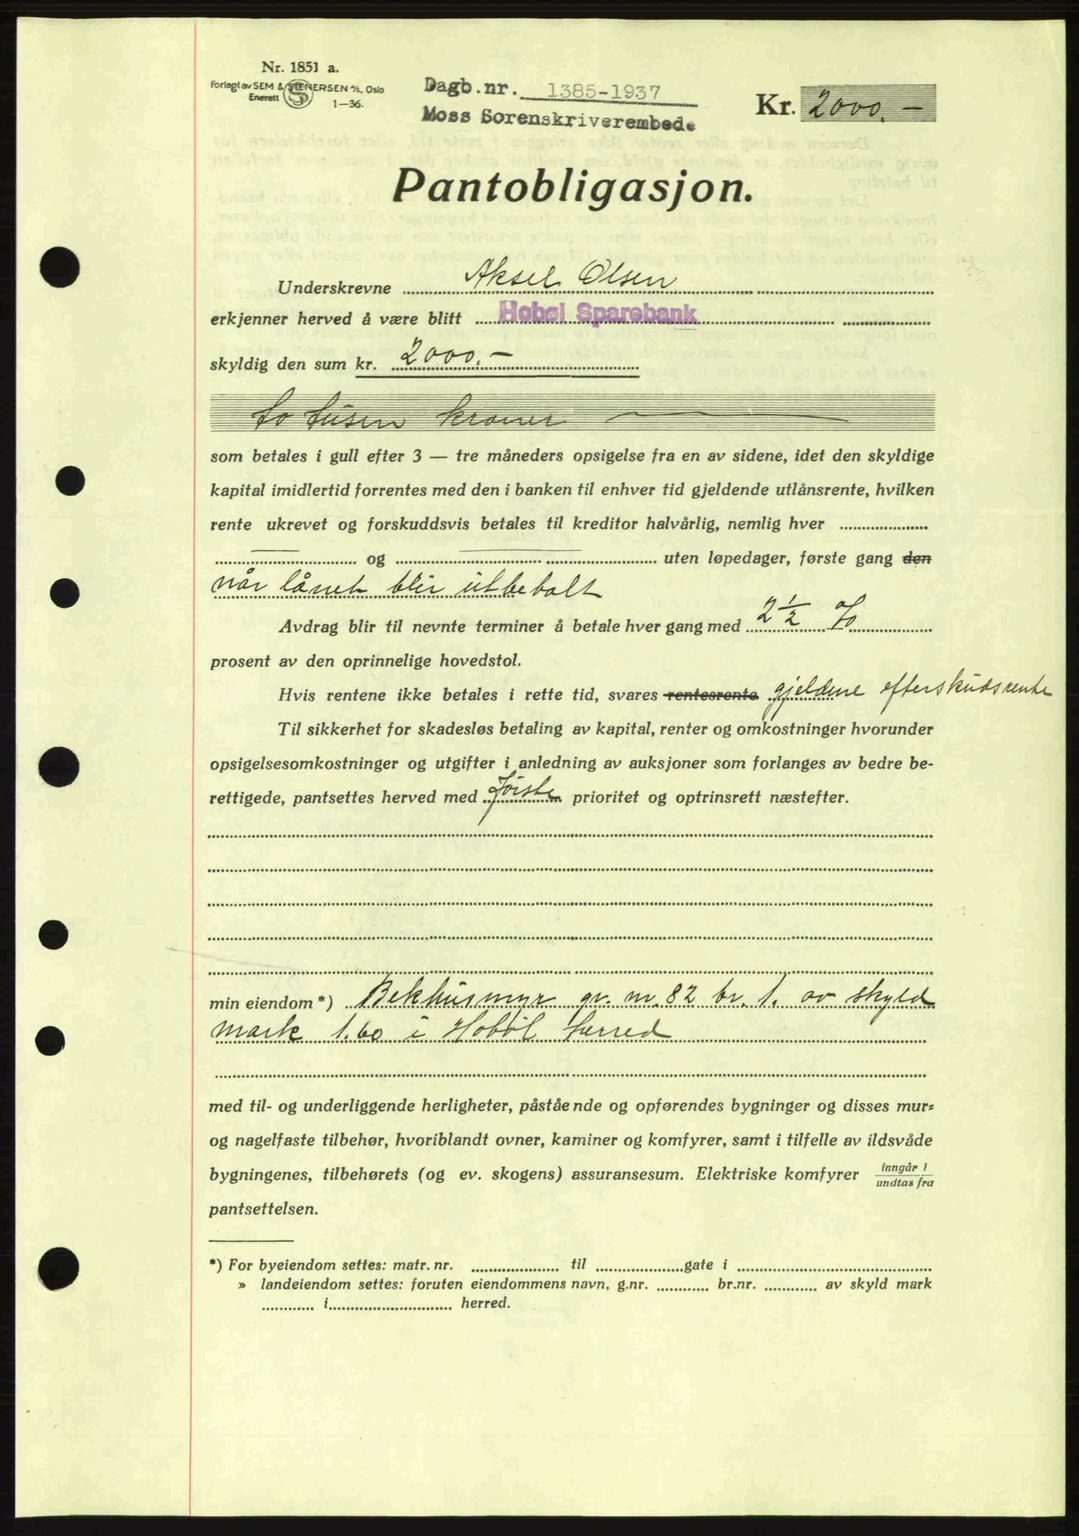 Nr. 1851 a.
Forlagt av SEM & STENERSEN A/S, Oslo
Enerett
1—36.
Dagb.nr. 1385-1937
Moss Sorenskriverembede
Kr. 2000.—
Pantobligasjon.
Underskrevne Aksel Olsen
erkjenner herved å være blitt Hobøl Sparebank
skyldig den sum kr. 2000.—
to tusen kroner
som betales i gull efter 3 — tre måneders opsigelse fra en av sidene, idet den skyldige
kapital imidlertid forrentes med den i banken til enhver tid gjeldende utlånsrente, hvilken
rente ukrevet og forskuddsvis betales til kreditor halvårlig, nemlig hver
og uten løpedager, første gang den
når lånet blir utbetalt
Avdrag blir til nevnte terminer å betale hver gang med 2 1/2 %
prosent av den oprinnelige hovedstol.
Hvis rentene ikke betales i rette tid, svares rentesrente gjeldene efterskudsrente
Til sikkerhet for skadesløs betaling av kapital, renter og omkostninger hvorunder
opsigelsesomkostninger og utgifter i anledning av auksjoner som forlanges av bedre be-
rettigede, pantsettes herved med første prioritet og optrinsrett næstefter.
min eiendom *) Bekhusmyr gr. nr 82 br. 1. av skyld
mark 1.60 i Hobøl herred
med til- og underliggende herligheter, påstående og opførendes bygninger og disses mur-
og nagelfaste tilbehør, hvoriblandt ovner, kaminer og komfyrer, samt i tilfelle av ildsvåde
bygningenes, tilbehørets (og ev. skogens) assuransesum. Elektriske komfyrer inngår i
undtas fra
pantsettelsen.
*) For byeiendom settes: matr. nr. til gate i
» landeiendom settes: foruten eiendommens navn, g.nr. br.nr. av skyld mark
i herred.